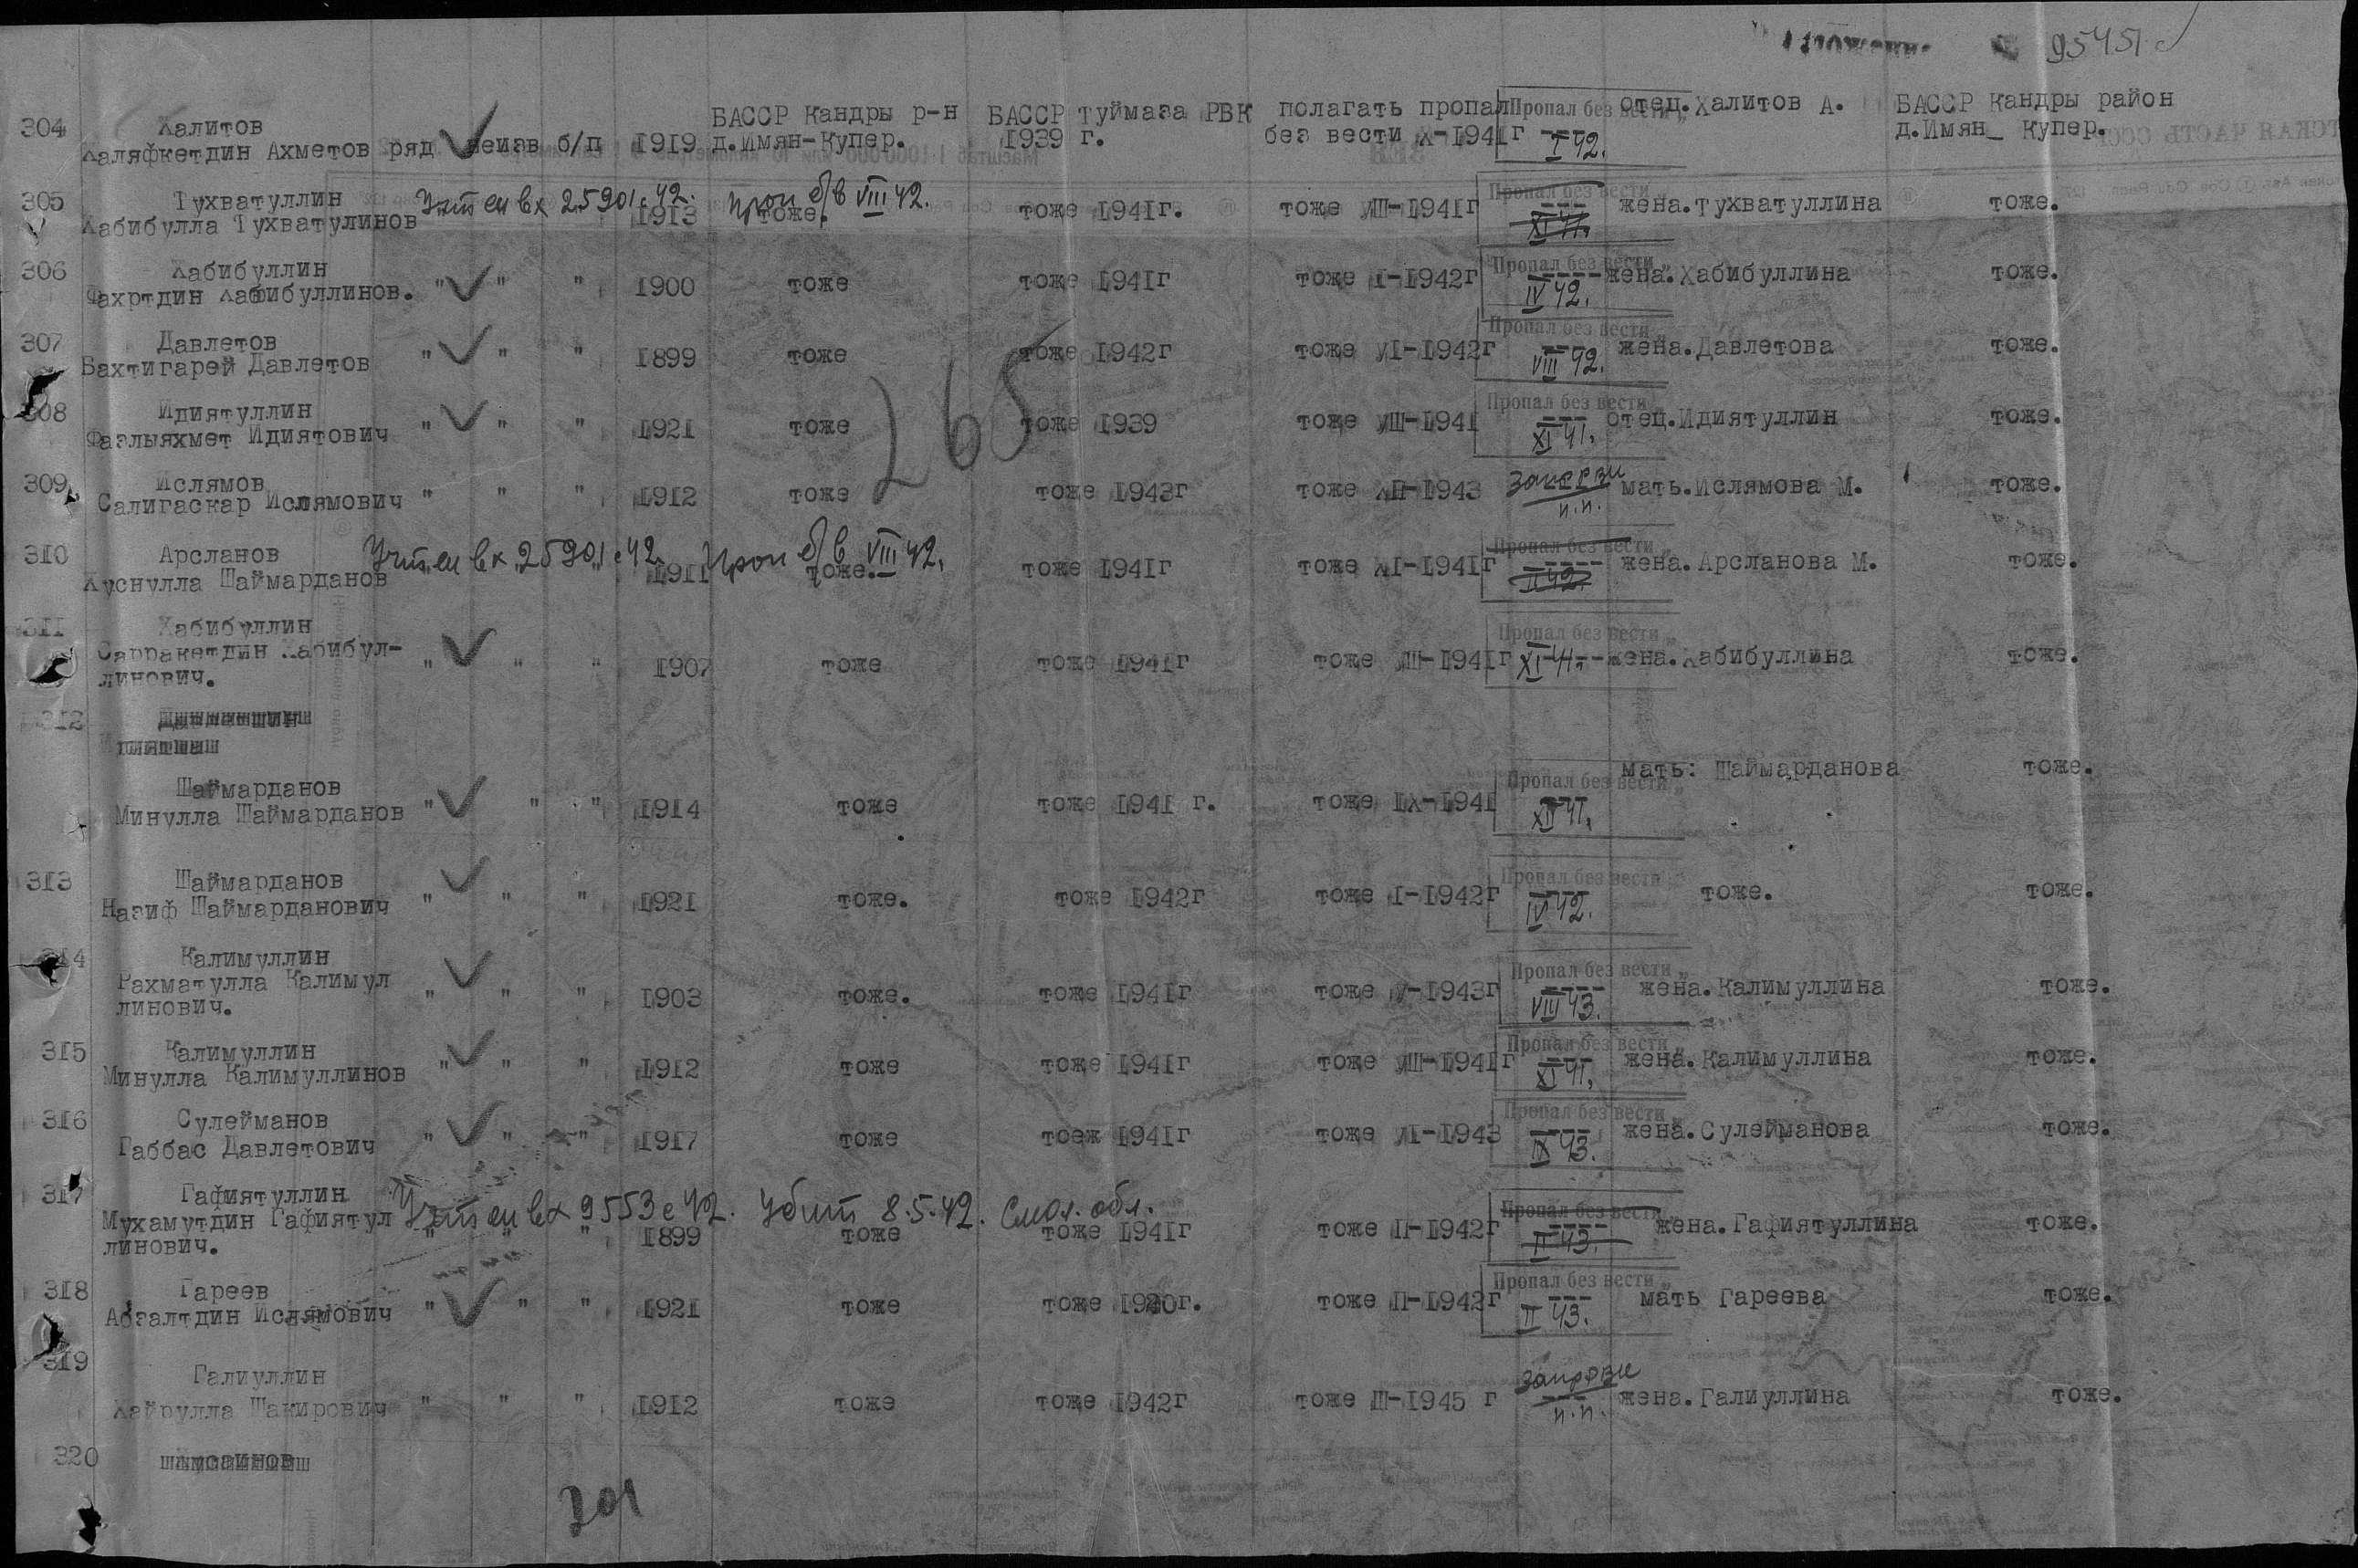 95451 с
304 Халитов БАССР Кандры р-н БАССР Туймаза РВК полагать пропал Пропал без вести отец.Халитов А. БАССР Кандры район
Каляфкетдин Ахметов ряд неизв б/п 1919 д.Имян-Купер. 1939 г. без вести X-1941г I 42. д.Имян_ Купер.
305 Тухватуллин Учтен вх 25901с42. проп б/в VIII 42. Пропал без вести
Хабибулла Тухватулинов 1913 тоже. тоже 1941г. тоже УШ-1941г XI 41. жена.тухватуллина тоже.
306 Хабибуллин Пропал без вести
Фахртдин Хабибуллинов. " " " 1900 тоже тоже 1941г тоже I-1942г IV 42. жена.Хабибуллина тоже.
307 Давлетов Пропал без вести
Бахтигарей Давлетов " " " 1899 тоже тоже 1942г тоже УI-1942г VIII 42. жена.Давлетова тоже.
265
308 Идиятуллин Пропал без вести
Фазлыяхмет Идиятович " " " 1921 тоже тоже 1939 тоже УШ-1941 XI 41. отец.Идиятуллин тоже.
309 Ислямов
Салигаскар Ислямович " " " 1912 тоже тоже 1943г тоже XП-1943 п.п. мать.Ислямова М. тоже.
310 Арсланов Учтен вх 25901с42 проп б/в VIII 42. Пропал без вести
Хуснулла Шаймарданов " " 1911 тоже. тоже 1941г тоже XI-1941г II 42. жена.Арсланова М. тоже.
311 Хабибуллин Пропал без вести
Сарракетдин Хабибул-
линович. " " " 1907 тоже тоже 1941г тоже УШ-1941г XI 41. жена.Хабибуллина тоже.
312
Шаймарданов Пропал без вести мать: Шаймарданова тоже.
Минулла Шаймарданов " " " 1914 тоже тоже 1941 г. тоже IX-1941 XII 41.
313 Шаймарданов Пропал без вести
Назиф Шаймарданович " " " 1921 тоже. тоже 1942г тоже I-1942г IV 42. тоже. тоже.
314 Калимуллин Пропал без вести
Рахматулла Калимул
линович. " " " 1903 тоже. тоже 1941г тоже У-1943г VIII 43. жена.Калимуллина тоже.
315 Калимуллин Пропал без вести
Минулла Калимуллинов " " " 1912 тоже тоже 1941г тоже УШ-1941г XI 41. жена.Калимуллина тоже.
316 Сулейманов Пропал без вести
Габбас Давлетович " " " 1917 тоже тоеж 1941г тоже УI-1943 IX 43. жена.Сулейманова тоже.
317 Гафиятуллин Учтен вх 9553с42. Убит 8.5.42. Смол. обл. Пропал без вести
Мухамутдин Гафиятул
линович. " " " 1899 тоже тоже 1941г тоже II-1942г II 43. жена.Гафиятуллина тоже.
318 Гареев Пропал без вести
Абзалтдин Ислямович " " " 1921 тоже тоже 1940г. тоже II-1942г II 43. мать Гареева тоже.
319 Галиуллин
Хайрулла Шакирович " " " 1912 тоже тоже 1942г тоже Ш-1945 г п.п. жена.Галиуллина тоже.
320
201